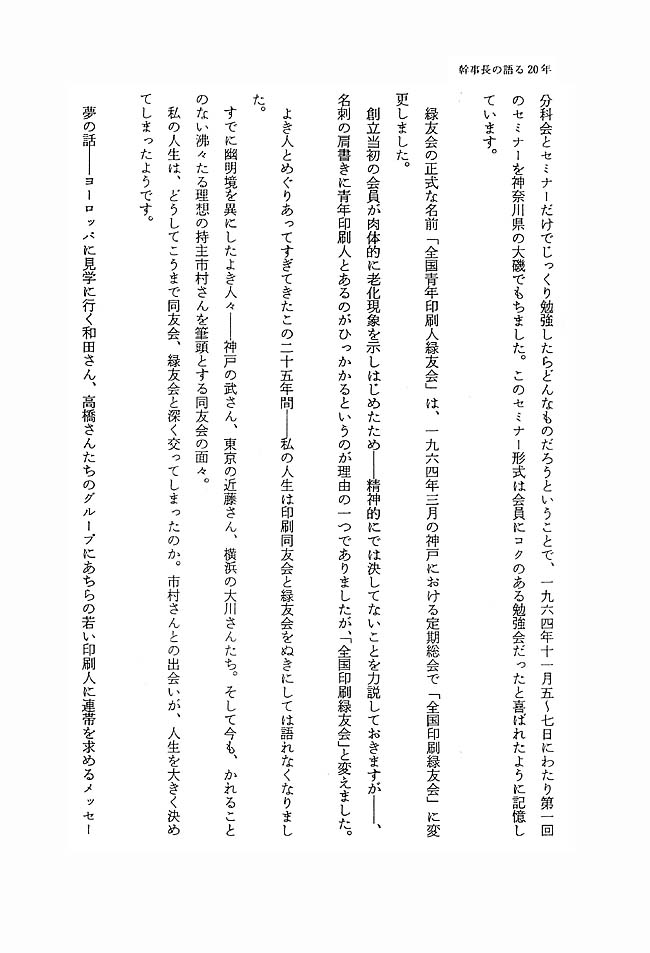 幹事長の語る20年
分科会とセミナーだけでじっくり勉強したらどんなものだろうということで、一九六四年十一月五〜七日にわたり第一回
のセミナーを神奈川県の大磯でもちました。このセミナー形式は会員にコクのある勉強会だったと喜ばれたように記憶し
ています。
緑友会の正式な名前「全国青年印刷人緑友会」は、一九六四年三月の神戸における定期総会で「全国印刷緑友会」に変
更しました。
創立当初の会員が肉体的に老化現象を示しはじめたため――精神的にでは決してないことを力説しておきますが――、
名刺の肩書きに青年印刷人とあるのがひっかかるというのが理由の一つでありましたが、「全国印刷緑友会」と変えました。
よき人とめぐりあってすぎてきたこの二十五年間――私の人生は印刷同友会と緑友会をぬきにしては語れなくなりまし
た。
すでに幽明境を異にしたよき人々――神戸の武さん、東京の近藤さん、横浜の大川さんたち。そして今も、かれること
のない沸々たる理想の持主市村さんを筆頭とする同友会の面々。
私の人生は、どうしてこうまで同友会、緑友会と深く交ってしまったのか。市村さんとの出会いが、人生を大きく決め
てしまったようです。
夢の話――ヨーロッパに見学に行く和田さん、高橋さんたちのグループにあちらの若い印刷人に連帯を求めるメッセー